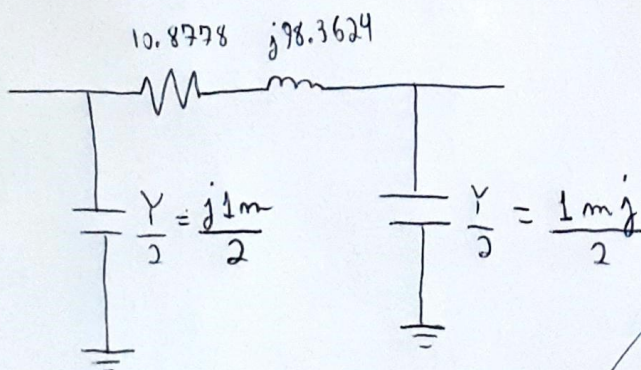 10.8778 j98.3624
Y/2 = j1m/2
Y/2 = 1mj/2